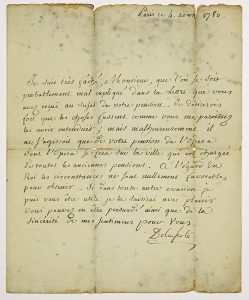 Paris ce 4 aoust 1780.
Je suis très faché, Monsieur, que l'on se soit
probablement mal expliqué dans la lettre que vous
avez reçue au sujet de votre pension. Je desirerois
fort que les choses fussent comme vous me paroissez
les avoir entendues; mais malheureusement il
ne s'agissoit que de votre pension de l'Opera
dont l'Opera se sur la ville qui est chargée
de toutes les anciennes pensions. A l'égard du
Roi les circonstances ne sont nullement favorables
pour obtenir. Si dans toute autre occasion je
puis vous être utile je la saisirai avec plaisir
vous pouvez en être persuadé ainsi que de la
sincérité de mes sentimens pour vous.